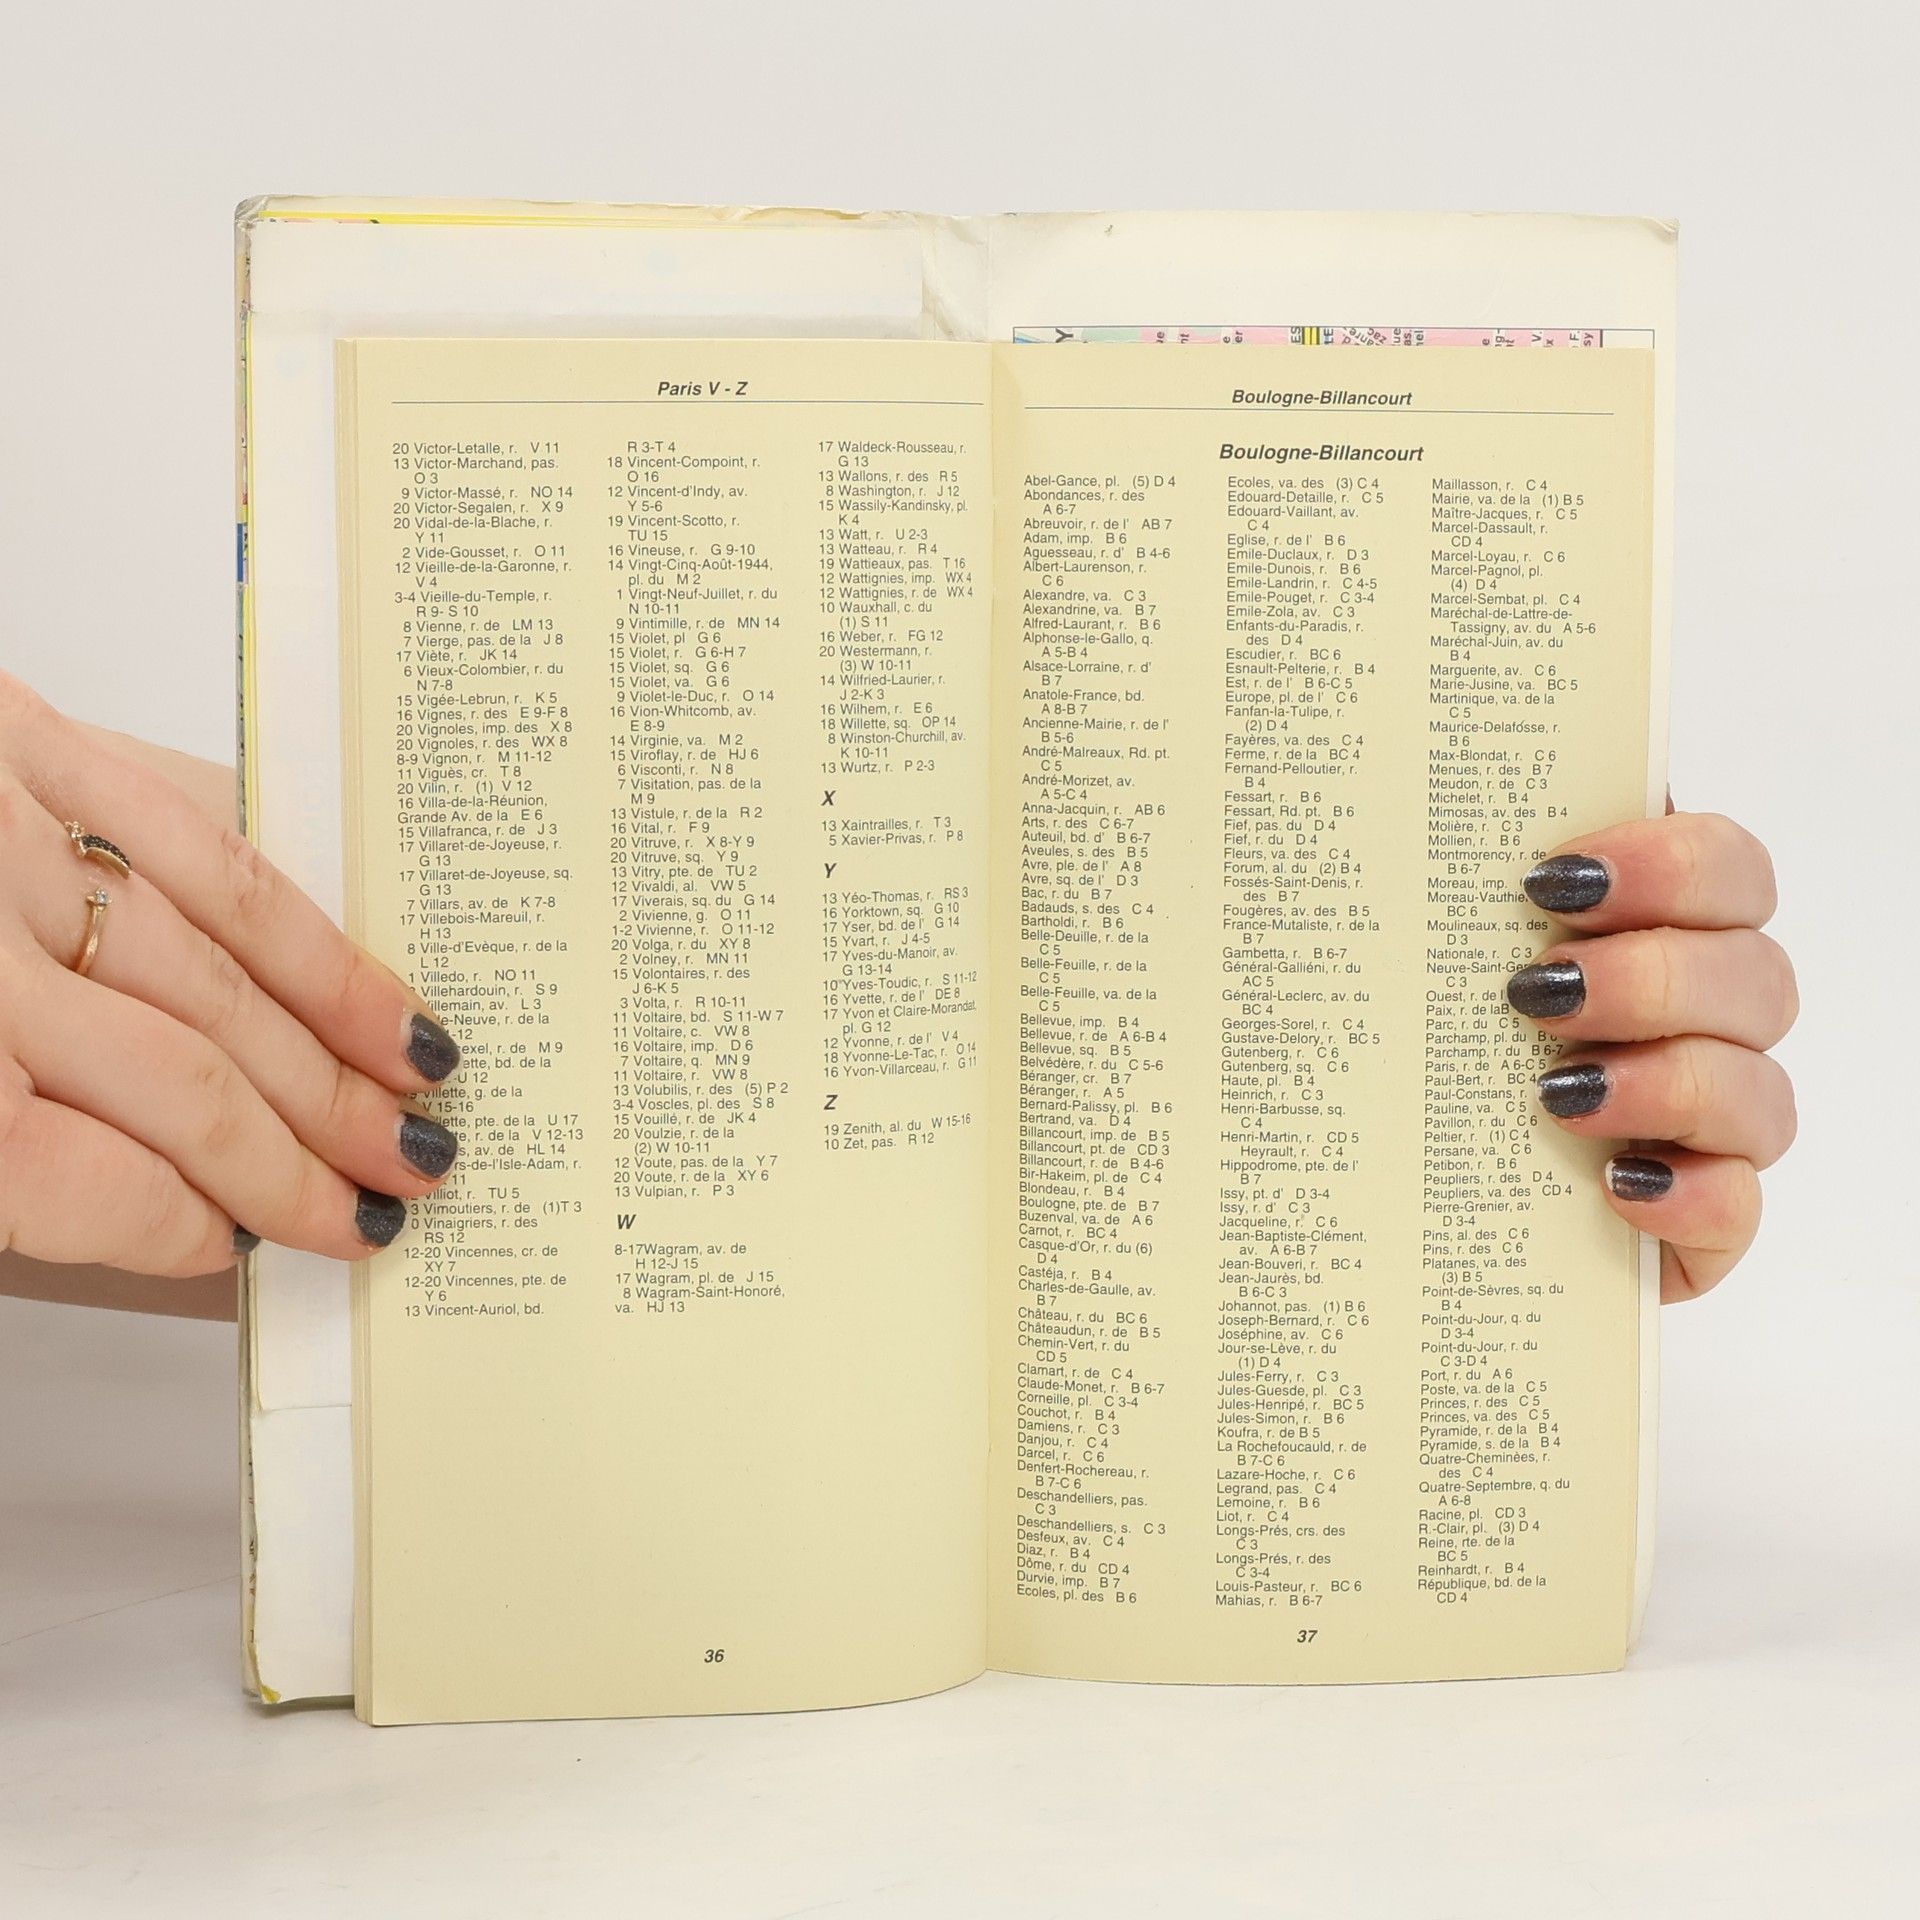 Paris V - Z
20 Victor-Letalle, r. V 11
13 Victor-Marchand, pas.
O 3
9 Victor-Massé, r. NO 14
20 Victor-Segalen, r. X 9
20 Vidal-de-la-Blache, r.
Y 11
2 Vide-Gousset, r. O 11
12 Vieille-de-la-Garonne, r.
V 4
3-4 Vieille-du-Temple, r.
R 9- S 10
8 Vienne, r. de LM 13
7 Vierge, pas. de la J 8
17 Viète, r. JK 14
6 Vieux-Colombier, r. du
N 7-8
15 Vigée-Lebrun, r. K 5
16 Vignes, r. des E 9-F 8
20 Vignoles, imp. des X 8
20 Vignoles, r. des WX 8
8-9 Vignon, r. M 11-12
11 Viguès, cr. T 8
20 Vilin, r. (1) V 12
16 Villa-de-la-Réunion,
Grande Av. de la E 6
15 Villafranca, r. de J 3
17 Villaret-de-Joyeuse, r.
G 13
17 Villaret-de-Joyeuse, sq.
G 13
7 Villars, av. de K 7-8
17 Villebois-Mareuil, r.
H 13
8 Ville-d'Evèque, r. de la
L 12
1 Villedo, r. NO 11
Villehardouin, r. S 9
av. L 3
r. de la
r. de M 9
bd. de la
U 12
Villette, g. de la
V 15-16
pte. de la U 17
r. de la V 12-13
av. de HL 14
r.
11
Villiot, r. TU 5
3 Vimoutiers, r. de (1)T 3
0 Vinaigriers, r. des
RS 12
12-20 Vincennes, cr. de
XY 7
12-20 Vincennes, pte. de
Y 6
13 Vincent-Auriol, bd.
R 3-T 4
18 Vincent-Compoint, r.
O 16
12 Vincent-d'Indy, av.
Y 5-6
19 Vincent-Scotto, r.
TU 15
16 Vineuse, r. G 9-10
14 Vingt-Cinq-Août-1944,
pl. du M 2
1 Vingt-Neuf-Juillet, r. du
N 10-11
9 Vintimille, r. de MN 14
15 Violet, pl G 6
15 Violet, r. G 6-H 7
15 Violet, sq. G 6
15 Violet, va. G 6
9 Violet-le-Duc, r. O 14
16 Vion-Whitcomb, av.
E 8-9
14 Virginie, va. M 2
15 Viroflay, r. de HJ 6
6 Visconti, r. N 8
7 Visitation, pas. de la
M 9
13 Vistule, r. de la R 2
16 Vital, r. F 9
20 Vitruve, r. X 8-Y 9
20 Vitruve, sq. Y 9
13 Vitry, pte. de TU 2
12 Vivaldi, al. VW 5
17 Viverais, sq. du G 14
2 Vivienne, g. O 11
1-2 Vivienne, r. O 11-12
20 Volga, r. du XY 8
2 Volney, r. MN 11
15 Volontaires, r. des
J 6-K 5
3 Volta, r. R 10-11
11 Voltaire, bd. S 11-W 7
11 Voltaire, c. VW 8
16 Voltaire, imp. D 6
7 Voltaire, q. MN 9
11 Voltaire, r. VW 8
13 Volubilis, r. des (5) P 2
3-4 Voscles, pl. des S 8
15 Vouillé, r. de JK 4
20 Voulzie, r. de la
(2) W 10-11
12 Voute, pas. de la Y 7
20 Voute, r. de la XY 6
13 Vulpian, r. P 3
W
8-17Wagram, av. de
H 12-J 15
17 Wagram, pl. de J 15
8 Wagram-Saint-Honoré,
va. HJ 13
17 Waldeck-Rousseau, r.
G 13
13 Wallons, r. des R 5
8 Washington, r. J 12
15 Wassily-Kandinsky, pl.
K 4
13 Watt, r. U 2-3
13 Watteau, r. R 4
19 Wattieaux, pas. T 16
12 Wattignies, imp. WX 4
12 Wattignies, r. de WX 4
10 Wauxhall, c. du
(1) S 11
16 Weber, r. FG 12
20 Westermann, r.
(3) W 10-11
14 Wilfried-Laurier, r.
J 2-K 3
16 Wilhem, r. E 6
18 Willette, sq. OP 14
8 Winston-Churchill, av.
K 10-11
13 Wurtz, r. P 2-3
X
13 Xaintrailles, r. T 3
5 Xavier-Privas, r. P 8
Y
13 Yéo-Thomas, r. RS 3
16 Yorktown, sq. G 10
17 Yser, bd. de l' G 14
15 Yvart, r. J 4-5
17 Yves-du-Manoir, av.
G 13-14
10 Yves-Toudic, r. S 11-12
16 Yvette, r. de l' DE 8
17 Yvon et Claire-Morandat,
pl. G 12
12 Yvonne, r. de l' V 4
18 Yvonne-Le-Tac, r. O 14
16 Yvon-Villarceau, r. G 11
Z
19 Zenith, al. du W 15-16
10 Zet, pas. R 12
36
Boulogne-Billancourt
Boulogne-Billancourt
Abel-Gance, pl. (5) D 4
Abondances, r. des
A 6-7
Abreuvoir, r. de l' AB 7
Adam, imp. B 6
Aguesseau, r. d' B 4-6
Albert-Laurenson, r.
C 6
Alexandre, va. C 3
Alexandrine, va. B 7
Alfred-Laurant, r. B 6
Alphonse-le-Gallo, q.
A 5-B 4
Alsace-Lorraine, r. d'
B 7
Anatole-France, bd.
A 8-B 7
Ancienne-Mairie, r. de l'
B 5-6
André-Malreaux, Rd. pt.
C 5
André-Morizet, av.
A 5-C 4
Anna-Jacquin, r. AB 6
Arts, r. des C 6-7
Auteuil, bd. d' B 6-7
Aveules, s. des B 5
Avre, ple. de l' A 8
Avre, sq. de l' D 3
Bac, r. du B 7
Badauds, s. des C 4
Bartholdi, r. B 6
Belle-Deuille, r. de la
C 5
Belle-Feuille, r. de la
C 5
Belle-Feuille, va. de la
C 5
Bellevue, imp. B 4
Bellevue, r. de A 6-B 4
Bellevue, sq. B 5
Belvédère, r. du C 5-6
Béranger, cr. B 7
Béranger, r. A 5
Bernard-Palissy, pl. B 6
Bertrand, va. D 4
Billancourt, imp. de B 5
Billancourt, pt. de CD 3
Billancourt, r. de B 4-6
Bir-Hakeim, pl. de C 4
Blondeau, r. B 4
Boulogne, pte. de B 7
Buzenval, va. de A 6
Carnot, r. BC 4
Casque-d'Or, r. du (6)
D 4
Castéja, r. B 4
Charles-de-Gaulle, av.
B 7
Château, r. du BC 6
Châteaudun, r. de B 5
Chemin-Vert, r. du
CD 5
Clamart, r. de C 4
Claude-Monet, r. B 6-7
Corneille, pl. C 3-4
Couchot, r. B 4
Damiens, r. C 3
Danjou, r. C 4
Darcel, r. C 6
Denfert-Rochereau, r.
B 7-C 6
Deschandelliers, pas.
C 3
Deschandelliers, s. C 3
Desfeux, av. C 4
Diaz, r. B 4
Dôme, r. du CD 4
Durvie, imp. B 7
Ecoles, pl. des B 6
Ecoles, va. des (3) C 4
Edouard-Detaille, r. C 5
Edouard-Vaillant, av.
C 4
Eglise, r. de l' B 6
Emile-Duclaux, r. D 3
Emile-Dunois, r. B 6
Emile-Landrin, r. C 4-5
Emile-Pouget, r. C 3-4
Emile-Zola, av. C 3
Enfants-du-Paradis, r.
des D 4
Escudier, r. BC 6
Esnault-Pelterie, r. B 4
Est, r. de l' B 6-C 5
Europe, pl. de l' C 6
Fanfan-la-Tulipe, r.
(2) D 4
Fayères, va. des C 4
Ferme, r. de la BC 4
Fernand-Pelloutier, r.
B 4
Fessart, r. B 6
Fessart, Rd. pt. B 6
Fief, pas. du D 4
Fief, r. du D 4
Fleurs, va. des C 4
Forum, al. du (2) B 4
Fossés-Saint-Denis, r.
des B 7
Fougères, av. des B 5
France-Mutaliste, r. de la
B 7
Gambetta, r. B 6-7
Général-Galliéni, r. du
AC 5
Général-Leclerc, av. du
BC 4
Georges-Sorel, r. C 4
Gustave-Delory, r. BC 5
Gutenberg, r. C 6
Gutenberg, sq. C 6
Haute, pl. B 4
Heinrich, r. C 3
Henri-Barbusse, sq.
C 4
Henri-Martin, r. CD 5
Heyrault, r. C 4
Hippodrome, pte. de l'
B 7
Issy, pt. d' D 3-4
Issy, r. d' C 3
Jacqueline, r. C 6
Jean-Baptiste-Clément,
av. A 6-B 7
Jean-Bouveri, r. BC 4
Jean-Jaurès, bd.
B 6-C 3
Johannot, pas. (1) B 6
Joseph-Bernard, r. C 6
Joséphine, av. C 6
Jour-se-Lève, r. du
(1) D 4
Jules-Ferry, r. C 3
Jules-Guesde, pl. C 3
Jules-Henripé, r. BC 5
Jules-Simon, r. B 6
Koufra, r. de B 5
La Rochefoucauld, r. de
B 7-C 6
Lazare-Hoche, r. C 6
Legrand, pas. C 4
Lemoine, r. B 6
Liot, r. C 4
Longs-Prés, crs. des
C 3
Longs-Prés, r. des
C 3-4
Louis-Pasteur, r. BC 6
Mahias, r. B 6-7
Maillasson, r. C 4
Mairie, va. de la (1) B 5
Maître-Jacques, r. C 5
Marcel-Dassault, r.
CD 4
Marcel-Loyau, r. C 6
Marcel-Pagnol, pl.
(4) D 4
Marcel-Sembat, pl. C 4
Maréchal-de-Lattre-de-
Tassigny, av. du A 5-6
Maréchal-Juin, av. du
B 4
Marguerite, av. C 6
Marie-Jusine, va. BC 5
Martinique, va. de la
C 5
Maurice-Delafosse, r.
B 6
Max-Blondat, r. C 6
Menues, r. des B 7
Meudon, r. de C 3
Michelet, r. B 4
Mimosas, av. des B 4
Molière, r. C 3
Mollien, r. B 6
Montmorency, r. de
B 6-7
Moreau, imp.
Moreau-Vauthie
BC 6
Moulineaux, sq. des
D 3
Nationale, r. C 3
Neuve-Saint-Ge
C 3
Ouest, r. de l
Paix, r. de la B
Parc, r. du C 5
Parchamp, pl. du B
Parchamp, r. du B 6-7
Paris, r. de A 6-C 5
Paul-Bert, r. BC 4
Paul-Constans, r.
Pauline, va. C 5
Pavillon, r. du C 6
Peltier, r. (1) C 4
Persane, va. C 6
Petibon, r. B 6
Peupliers, r. des D 4
Peupliers, va. des CD 4
Pierre-Grenier, av.
D 3-4
Pins, al. des C 6
Pins, r. des C 6
Platanes, va. des
(3) B 5
Point-de-Sèvres, sq. du
B 4
Point-du-Jour, q. du
D 3-4
Point-du-Jour, r. du
C 3-D 4
Port, r. du A 6
Poste, va. de la C 5
Princes, r. des C 5
Princes, va. des C 5
Pyramide, r. de la B 4
Pyramide, s. de la B 4
Quatre-Cheminèes, r.
des C 4
Quatre-Septembre, q. du
A 6-8
Racine, pl. CD 3
R.-Clair, pl. (3) D 4
Reine, rte. de la
BC 5
Reinhardt, r. B 4
République, bd. de la
CD 4
37